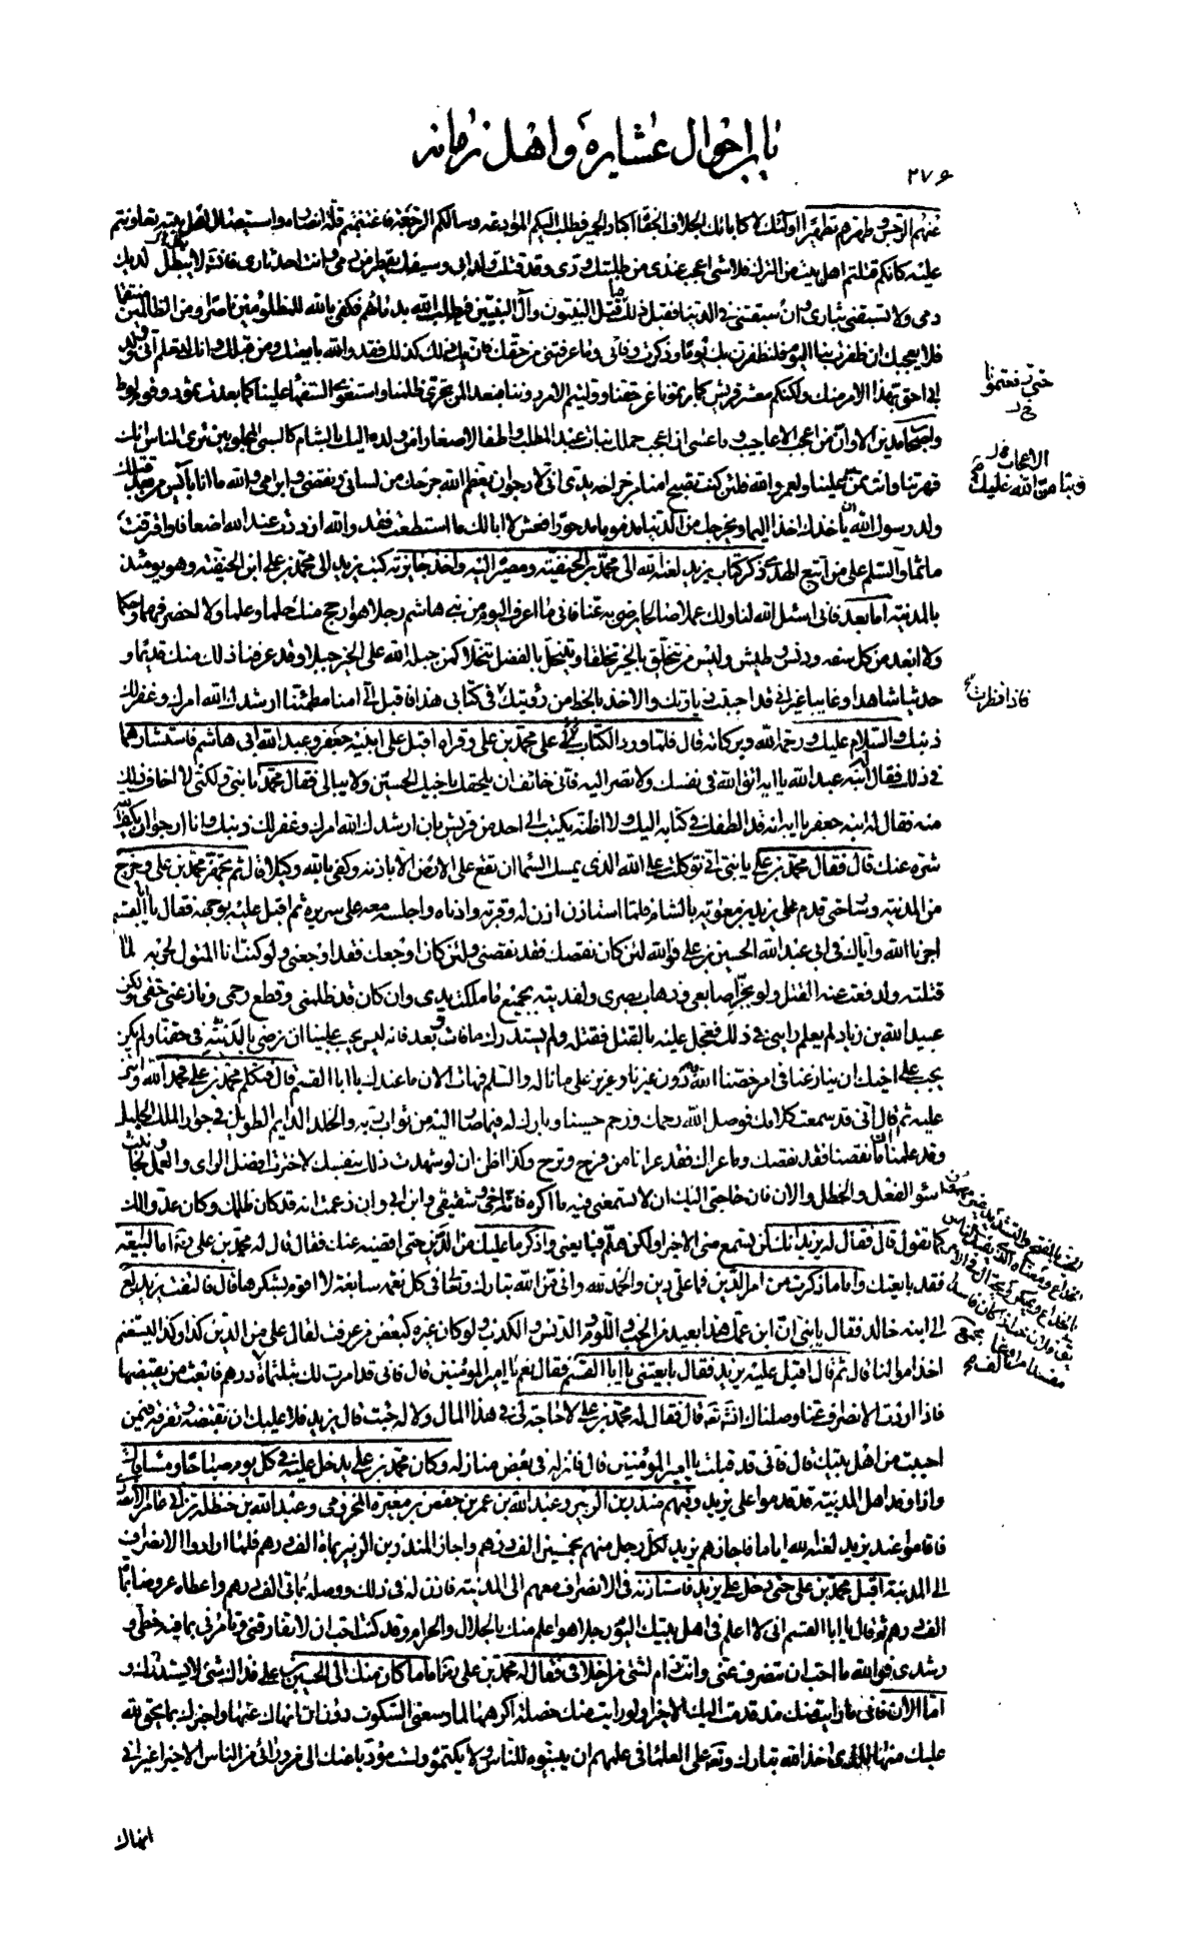 باب احوال عشايره و اهل زمانه
٢٧۶
عنهم الرجس وطهرهم تطهيرا اولئك لا كآبائك الجلاف الجفاة اكباد الحمير فطلب اليكم الموادعة وسالكم الرجعة فاغتنمتم قلة انصاره واستيصال اهل بيته تعاونتم
عليه كانكم قتلتم اهل بيت من الترك فلا شئ اعجب عندى من طلبتك ودى وقد قتلت ولد ابى وسيفك يقطر من دمى وانت احد ثارى فان شاء الله لا يبطل لديك
دمى ولا تسبقنى بثارى وان سبقتنى فى الدنيا فقبل ذلك ما قتل النبيون وآل النبيين فيطلب الله بدمائهم فكفى بالله للمظلومين ناصرا ومن الظالمين منتقما
فلا يعجبك ان ظفرت بنا اليوم فلنظفرن بك يوما وذكرت وفائى وما عرفتنى من حقك فان يك ذلك كذلك فقد والله بايعتك ومن قبلك وانك لتعلم انى وولد
ابى احق بهذا الامر منك ولكنكم معشر قريش كابرتمونا عن حقنا ووليتم الامر دوننا فبعدا لمن تحرى ظلمنا واستغوى السفهاء علينا كما بعدت ثمود وقوم لوط
واصحاب مدين الا وان من اعجب الاعاجيب وما عسى ان اعجب حملك بنات عبد المطلب واطفالا صغارا من ولده اليك بالشام كالسبى المجلوبين ترى الناس انك
قهرتنا وانت تمن علينا ولعمرو الله فلئن كنت تصبح آمنا من جراحة يدى انى لارجو ان يعظم الله جرحك من لسانى ونقضى وابرامى والله ما انا بآيس من بعد قتلك
ولد رسول الله ان ياخذك اخذا اليما ويخرجك من الدنيا مذموما مدحورا فعش لا ابا لك ما استطعت فقد والله ازددت عند الله اضعافا واقترفت
مآثما والسلم على من اتبع الهدى ذكر كتاب يزيد لعنه الله الى محمد بن الحنفية ومصيره اليه واخذ جايزته كتب يزيد الى محمد بن على ابن الحنفية وهو يومئذ
بالمدينة اما بعد فانى اسئل الله لنا ولك عملا صالحا يرضى به عنا فانى ما اعرف اليوم فى بنى هاشم رجلا هو ارجح منك حلما وعلما ولا احضر فهما وحكما
ولا ابعد من كل سفه ودنس وطيش وليس من يتخلق بالخير تخلقا وينتحل بالفضل تنحلا كمن جبله الله على الخير جبلا وقد عرفنا ذلك منك قديما و
حديثا شاهدا وغايبا غير انى قد احببت زيارتك والاخذ بالحظ من رؤيتك فاذا نظرت فى كتابى هذا فاقبل الى آمنا مطمئنا ارشدك الله امرك وغفر لك
ذنبك والسلام عليك ورحمة الله وبركاته قال فلما ورد الكتاب على محمد بن على وقراه اقبل على ابنيه جعفر وعبد الله ابى هاشم فاستشارهما
فى ذلك فقال له ابنه عبد الله يا ابه اتق الله فى نفسك ولا تصر اليه فانى خائف ان يلحقك باخيك الحسين ولا يبالى فقال محمد يا بنى ولكنى لا اخاف ذلك
منه فقال له ابنه جعفر يا ابه انه قد الطفك فى كتابه اليك ولا اظنه يكتب الى احد من قريش بان ارشدك الله امرك وغفر لك ذنبك وانا ارجو ان يكف الله
شره عنك قال فقال محمد بن على يا بنى انى توكلت على الله الذى يمسك السماء ان تقع على الارض الا باذنه وكفى بالله وكيلا قال ثم تجهز محمد بن على وخرج
من المدينة وسار حتى قدم على يزيد بن معوية بالشام فلما استاذن اذن له وقربه وادناه واجلسه معه على سريره ثم اقبل عليه بوجهه فقال يا ابا القسم
اجرنا الله واياك فى ابى عبد الله الحسين بن على فوالله لئن كان نقصك فقد نقصنى ولئن كان اوجعك فقد اوجعنى ولو كنت انا المتولى لحربه لما
قتلته ولدفعت عنه القتل ولو بجز اصابعى وذهاب بصرى ولفديته بجميع ما ملكت يدى وان كان قد ظلمنى وقطع رحمى ونازعنى حقى ولكن
عبيد الله بن زياد لم يعلم رايى فى ذلك فعجل عليه بالقتل فقتله ولم يستدرك ما فات وبعد فانه ليس يجب علينا ان نرضى بالدنية فى حقنا ولم يكن
يجب على اخيك ان ينازعنا فى امر خصنا الله به دون غيرنا وعزيز على ما ناله والسلم فهات الآن ما عندك يا ابا القسم قال فتكلم محمد بن على فحمد الله واثنى
عليه ثم قال انى قد سمعت كلامك فوصل الله رحمك ورحم حسينا وبارك له فيما صار اليه من ثواب ربه والخلد الدايم الطويل فى جوار الملك الجليل
وقد علمنا ان ما نقصنا فقد نقصك وما عراك فقد عرانا من فرح وترح وكذا اظن ان لو شهدت ذلك بنفسك لاخترت افضل الراى والعمل ولجانبت
اسوأ الفعل والخطل والآن فان حاجتى اليك ان لا تسمعنى فيه ما اكره فانه اخى وشقيقى وابن ابى وان زعمت انه قد كان ظلمك وكان عدوا لك
كما تقول قال فقال له يزيد انك لن تسمع منى الا خيرا ولكن هلم فبايعنى واذكر ما عليك من الدين حتى اقضيه عنك فقال له محمد بن على اما البيعة
فقد بايعتك واما ما ذكرت من امر الدين فما على دين والحمد لله وانى من الله تبارك وتعالى فى كل نعمة سابغة لا اقوم بشكرها قال فالتفت يزيد لع
الى ابنه خالد فقال يا بنى ان ابن عمك هذا بعيد من الخب واللوم والدنس والكذب ولو كان غيره كبعض من عرفت لقال على من الدين كذا وكذا ليستغنم
اخذ اموالنا قال ثم اقبل عليه يزيد فقال بايعتنى يا ابا القسم فقال نعم يا امير المؤمنين قال فانى قد امرت لك بثلثمأة الف درهم فابعث من يقبضها
فاذا اردت الانصراف عنا وصلناك انشاء الله قال فقال له محمد بن على لا حاجة لى فى هذا المال ولا له جئت قال يزيد فلا عليك ان تقبضه وتفرقه فيمن
احببت من اهل بيتك قال فانى قد قبلت يا امير المؤمنين قال فانزله فى بعض منازله وكان محمد بن على يدخل عليه فى كل يوم صباحا ومساء قال
واذا وفد اهل المدينة قد قدموا على يزيد وفيهم منذر بن الزبير وعبد الله بن عمر بن حفص بن مغيرة المخزومى وعبد الله بن حنظلة بن ابى عامر الانصارى
فاقاموا عند يزيد لعنه الله اياما فاجازهم يزيد لكل رجل منهم بخمسين الف درهم واجاز المنذر بن الزبير بمأة الف درهم فلما ارادوا الانصراف
الى المدينة اقبل محمد بن على حتى دخل على يزيد فاستاذنه فى الانصراف معهم الى المدينة فاذن له فى ذلك ووصله بمأتى الف درهم واعطاه عروضا بمأة
الف درهم ثم قال يا ابا القسم انى لا اعلم فى اهل بيتك اليوم رجلا هو اعلم منك بالحلال والحرام وقد كنت احب ان لا تفارقنى وتامرنى بما فيه حظى و
رشدى فوالله ما احب ان تنصرف عنى وانت ذام لشئ من اخلاقى فقال له محمد بن على اما ما كان منك الى الحسين بن على فذاك شئ لا يستدرك و
اما الآن فانى ما رايت منك مذ قدمت اليك الا خيرا ولو رايت منك خصلة اكرهها لما وسعنى السكوت دون ان انهاك عنها واخبرك بما يحق لله
عليك منها للذى اخذ الله تبارك وتعالى على العلماء فى علمهم ان يبينوه للناس ولا يكتموه ولست مؤديا عنك الى من ورائى من الناس الا خيرا غير انى
انهاك